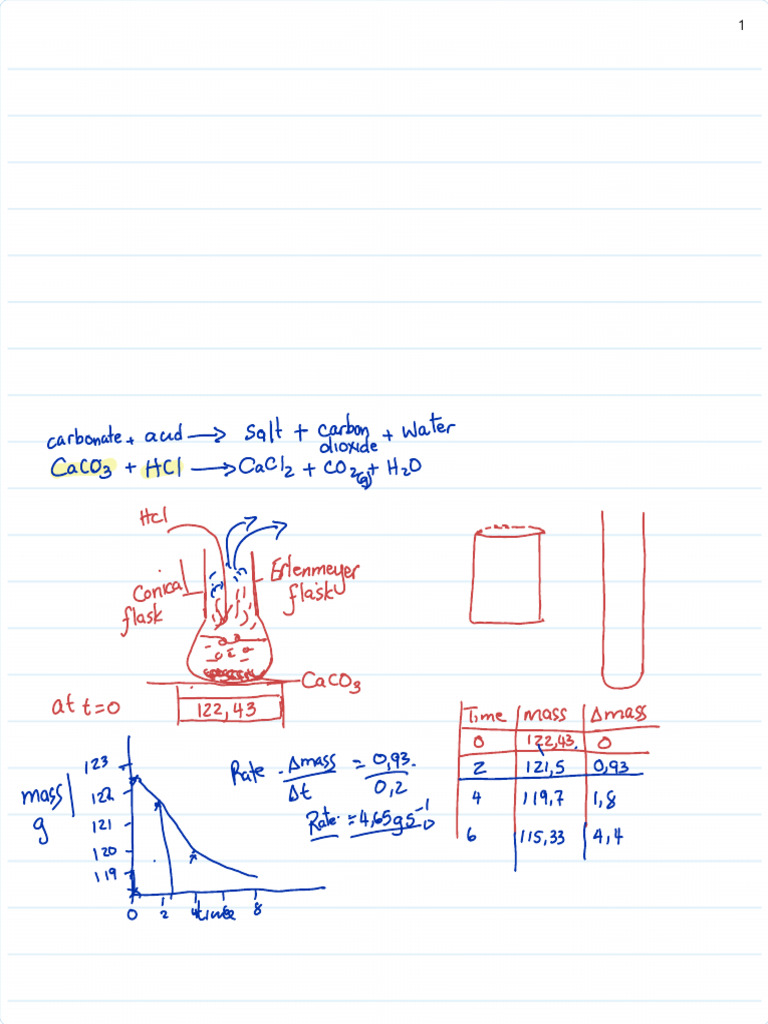 1
carbonate + acid → salt + carbon dioxide + water
CaCO3 + HCl → CaCl2 + CO2(g) + H2O
HCl
Conical flask
Erlenmeyer flask
CaCO3
at t=0
122,43
Time | mass | Δmass
0 | 122,43 | 0
2 | 121,5 | 0,93
4 | 119,7 | 1,8
6 | 115,33 | 4,4
Rate = Δmass / Δt = 0,93 / 0,2
Rate = 4,65 g s⁻¹
mass
g
123
122
121
120
119
0 2 4 6 8
time